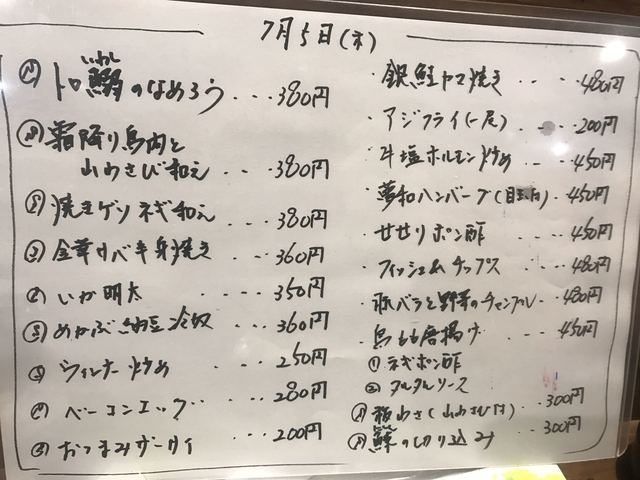 7月5日(木)
いわし
㋜トロ鰯のなめろう...380円
㋜霜降り鳥肉と
山わさび和え...380円
㋜焼きゲソネギ和え...380円
㋜金華サバ半身焼き...360円
㋜いか明太...350円
㋜めかぶ納豆冷奴...360円
㋜ウィンナー炒め...250円
㋜ベーコンエッグ...280円
㋜おつまみザーサイ...200円
・銀鮭カマ焼き...480円
・アジフライ(一尾)...200円
・牛塩ホルモン炒め...450円
・和ハンバーグ(目玉付)...450円
・せせりポン酢...450円
・フィッシュ&ムチップス...480円
・豚バラと野菜のチャンプルー...480円
・鳥もも唐揚げ...450円
①ネギポン酢
②タルタルソース
・板わさ(山わさび付)...300円
・の切り込み...300円